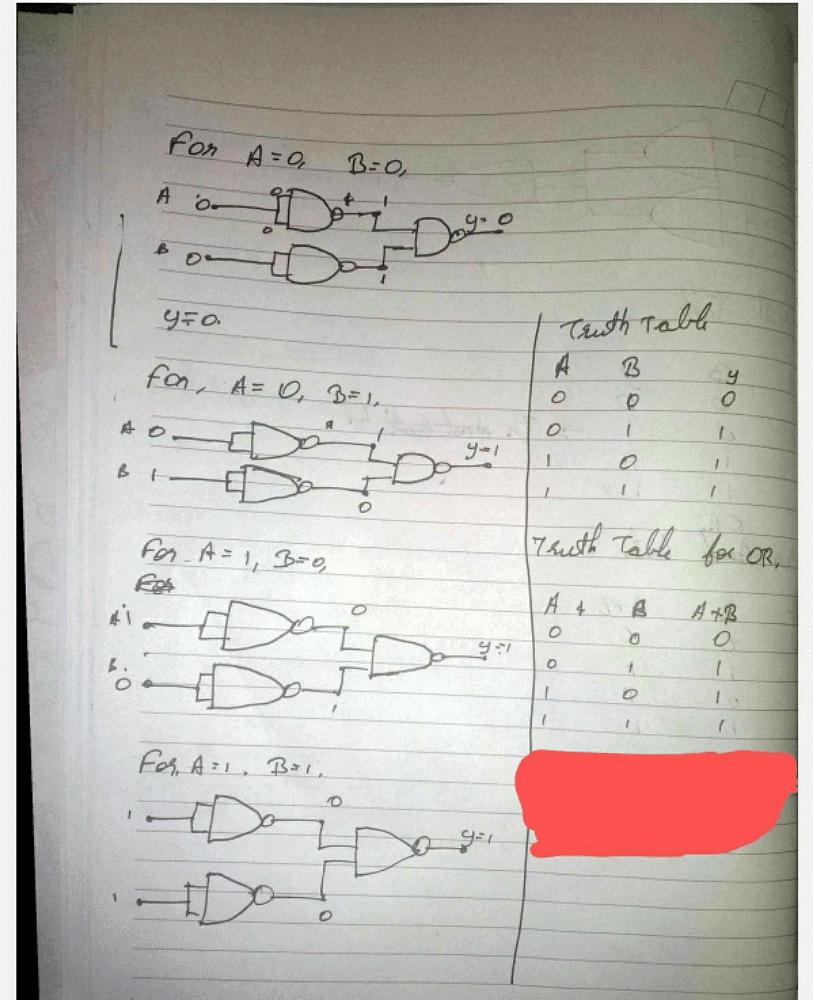 For A=0, B=0,
A 0 0 1
0 y=0
B 0 1
y=0.
For, A=0, B=1,
A 0 1
y=1
B 1 0
For A=1, B=0,
For
A 1 0
y=1
B. 0 1
For, A=1, B=1,
1 0
y=1
1 0
Truth Table
A B y
0 0 0
0 1 1
1 0 1
1 1 1
Truth Table for OR,
A + B A+B
0 0 0
0 1 1
1 0 1
1 1 1